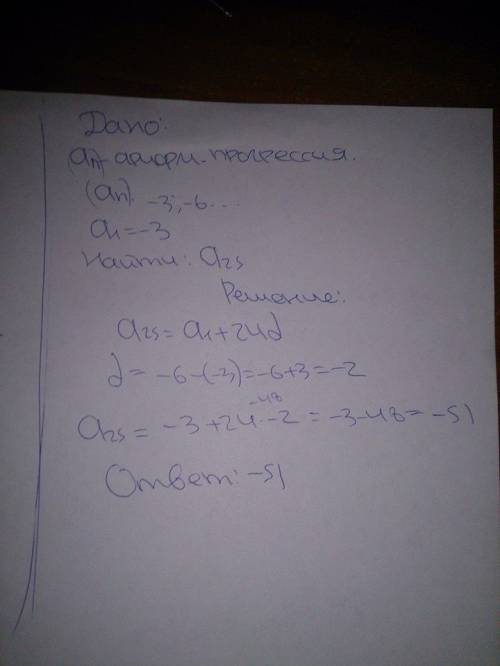 Дано:
(aₙ)-арифм. прогрессия.
(aₙ). -3; -6...
a₁=-3
Найти: a₂₅
Решение:
a₂₅= a₁+24d
d= -6-(-3)=-6+3=-2
-48
a₂₅= -3+24·-2= -3-48= -51
Ответ: -51